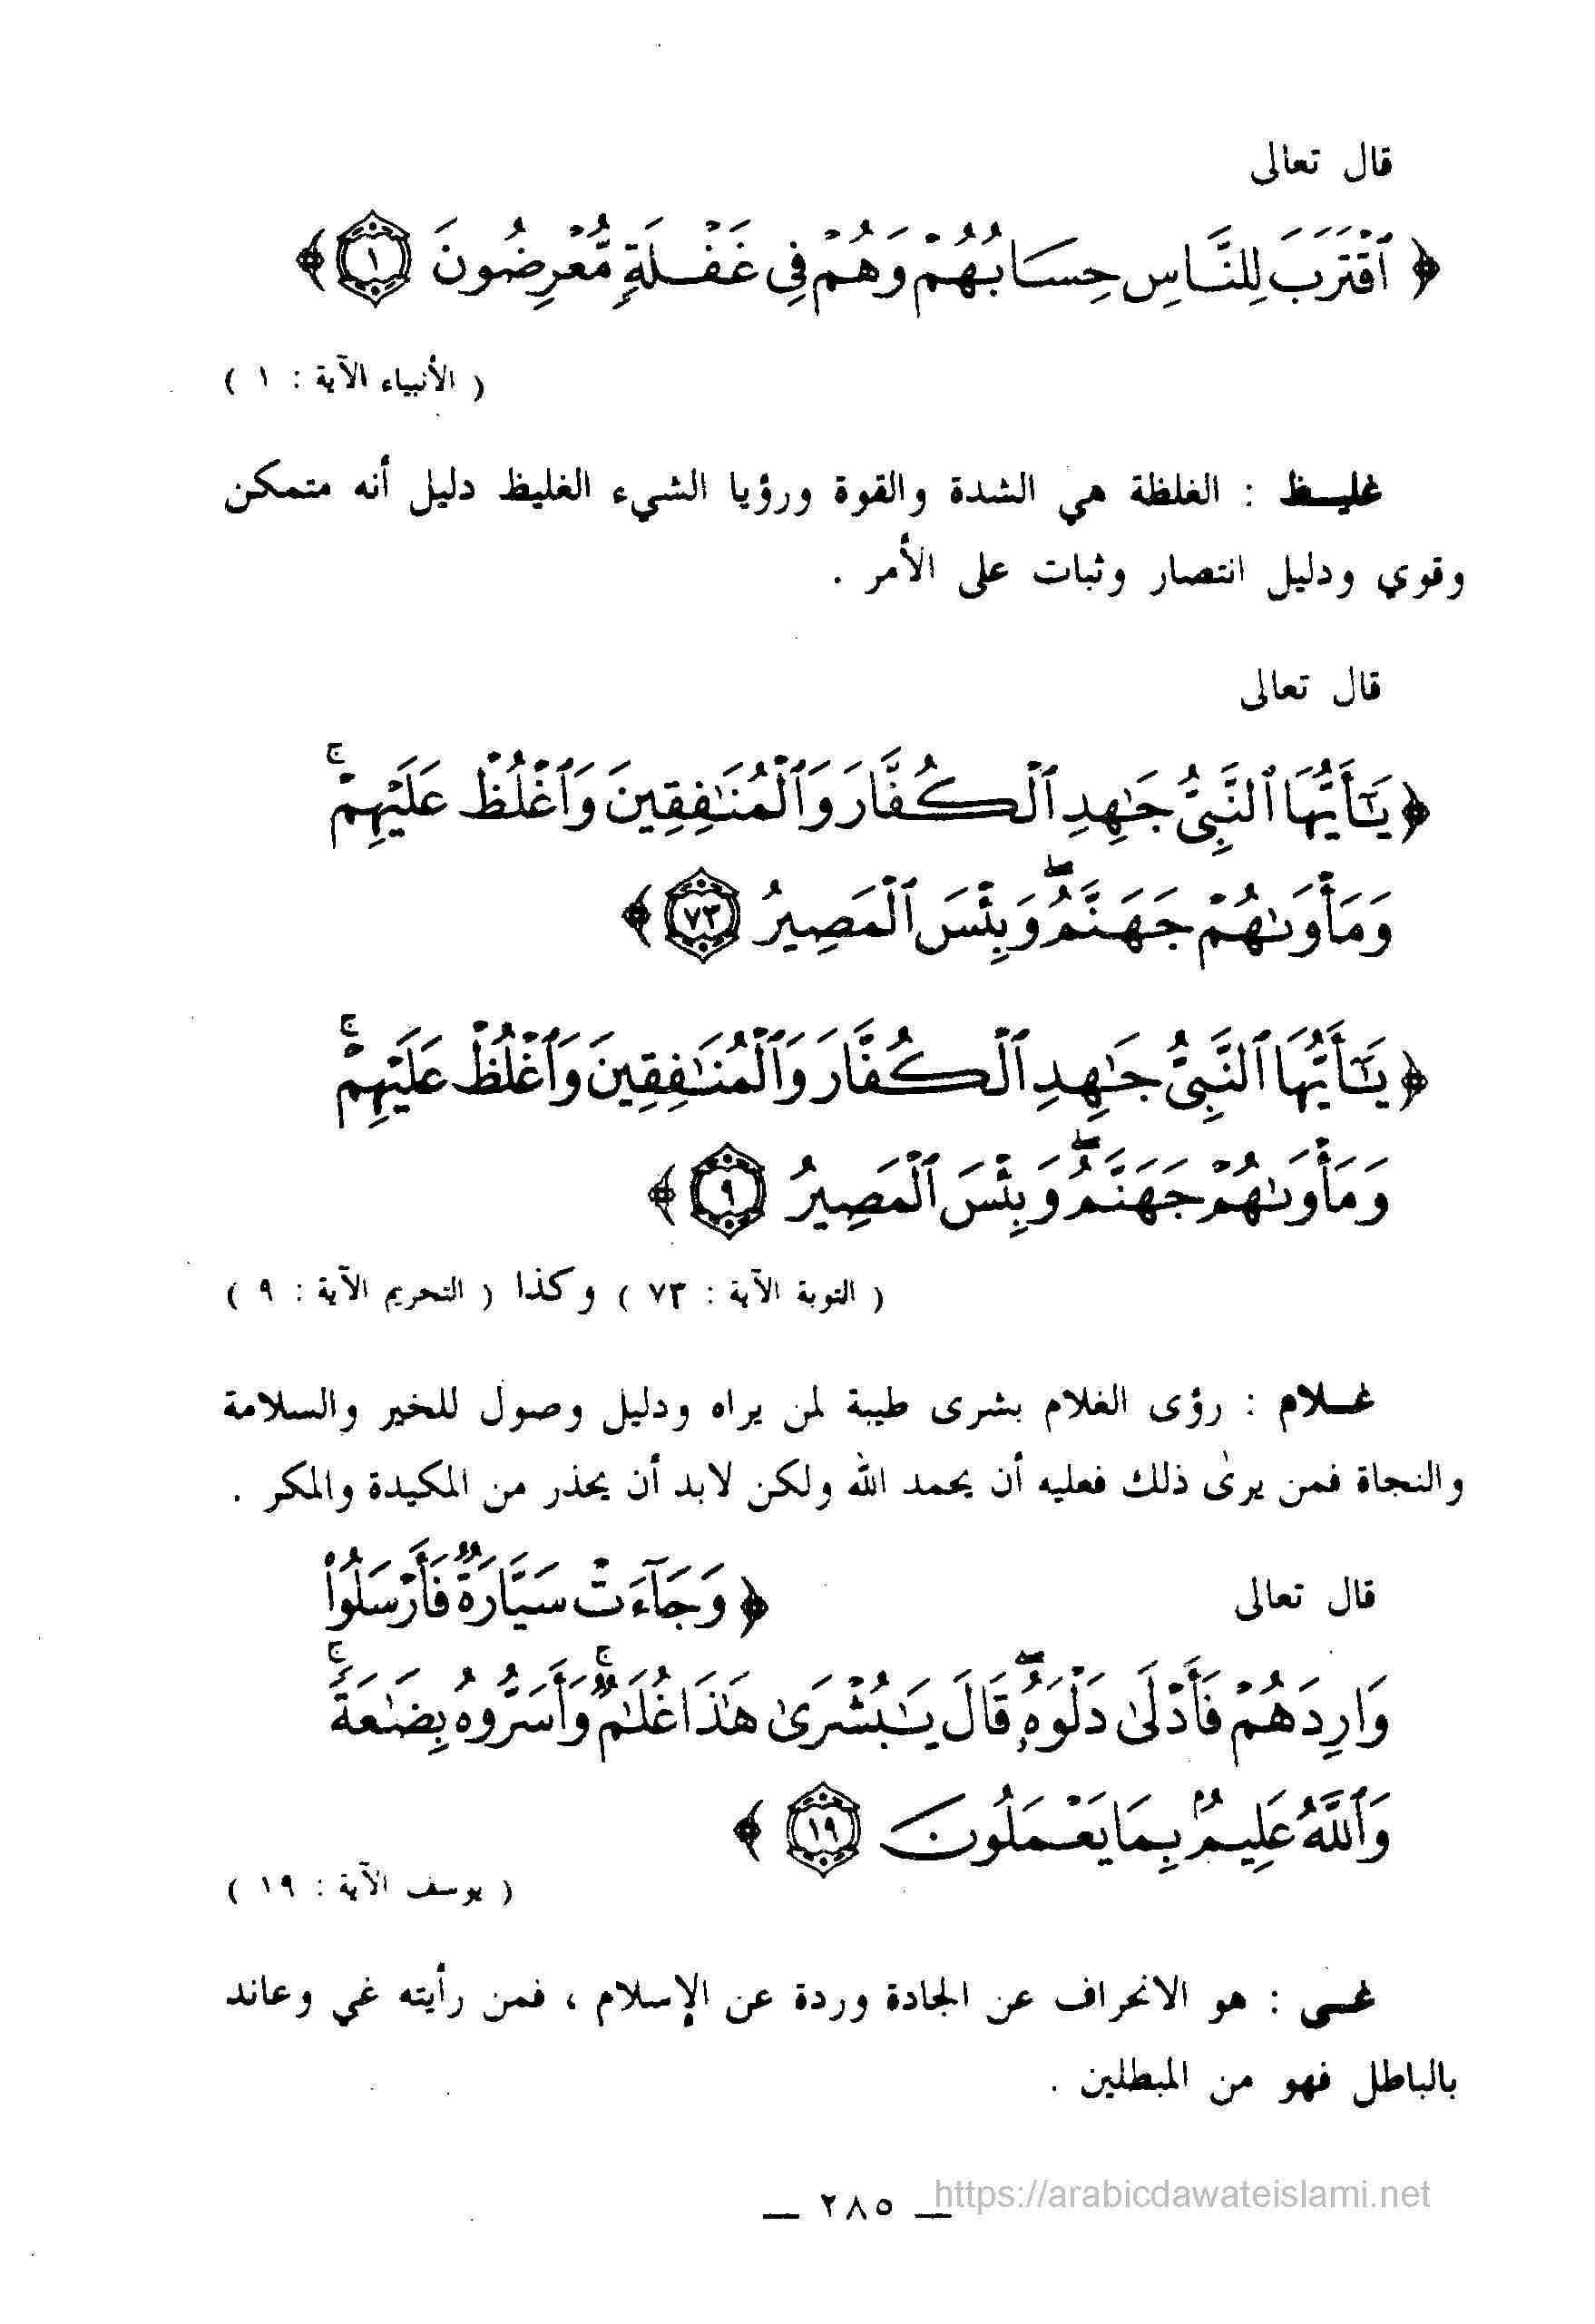 قال تعالى
﴿ ٱقْتَرَبَ لِلنَّاسِ حِسَابُهُمْ وَهُمْ فِى غَفْلَةٍ مُّعْرِضُونَ ١ ﴾
( الأنبياء الآية : ١ )
غليـظ : الغلظة هي الشدة والقوة ورؤيا الشيء الغليظ دليل أنه متمكن
وقوي ودليل انتصار وثبات على الأمر .
قال تعالى
﴿ يَـٰٓأَيُّهَا ٱلنَّبِىُّ جَـٰهِدِ ٱلْكُفَّارَ وَٱلْمُنَـٰفِقِينَ وَٱغْلُظْ عَلَيْهِمْ ۚ
وَمَأْوَىٰهُمْ جَهَنَّمُ ۖ وَبِئْسَ ٱلْمَصِيرُ ٧٣ ﴾
﴿ يَـٰٓأَيُّهَا ٱلنَّبِىُّ جَـٰهِدِ ٱلْكُفَّارَ وَٱلْمُنَـٰفِقِينَ وَٱغْلُظْ عَلَيْهِمْ ۚ
وَمَأْوَىٰهُمْ جَهَنَّمُ ۖ وَبِئْسَ ٱلْمَصِيرُ ٩ ﴾
( التوبة الآية : ٧٣ ) وكذا ( التحريم الآية : ٩ )
غـلام : رؤى الغلام بشرى طيبة لمن يراه ودليل وصول للخير والسلامة
والنجاة فمن يرىٰ ذلك فعليه أن يحمد الله ولكن لابد أن يحذر من المكيدة والمكر .
قال تعالى ﴿ وَجَآءَتْ سَيَّارَةٌ فَأَرْسَلُوا۟
وَارِدَهُمْ فَأَدْلَىٰ دَلْوَهُۥ ۖ قَالَ يَـٰبُشْرَىٰ هَـٰذَا غُلَـٰمٌ ۚ وَأَسَرُّوهُ بِضَـٰعَةً ۚ
وَٱللَّهُ عَلِيمٌۢ بِمَا يَعْمَلُونَ ١٩ ﴾
( يوسف الآية : ١٩ )
غـى : هو الانحراف عن الجادة وردة عن الإسلام ، فمن رأيته غي وعاند
بالباطل فهو من المبطلين .
— ٢٨٥ —
https://arabicdawateislami.net